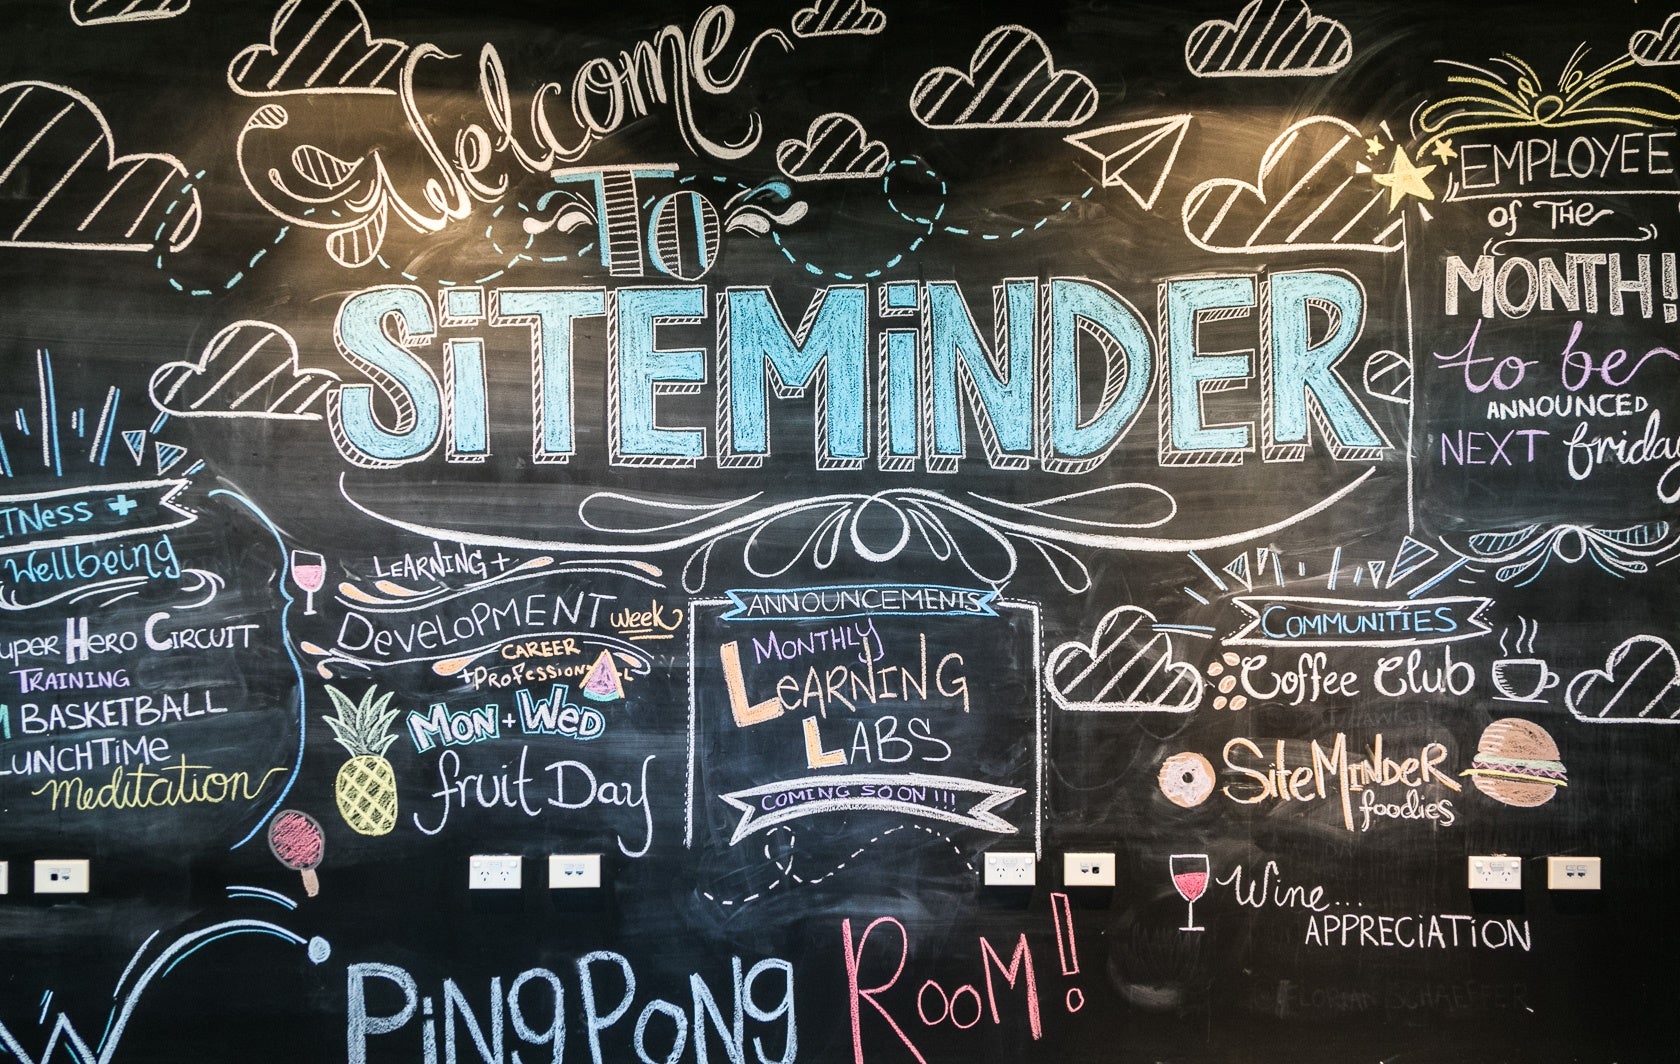 Welcome
To
SiTEMiNDER
EMPLOYEE
of THE
MONTH!
to be
ANNOUNCED
NEXT friday
ITNess +
Wellbeing
uper Hero Circuit
TRAINING
M BASKETBALL
LUNCHTIMe
Meditation
LEARNING +
DeveLOPMENT week
CAREER
+ProfessionAL
MON + WeD
fruit Day
ANNOUNCEMENTS
MONTHLY
LeARNING
LABS
COMING SOON!!!
COMMUNITIES
Coffee Club
SiteMiNDeR
foodies
Wine...
APPRECiATiON
PiNgPoNg RooM!!
FLORIAN SCHAEFFER